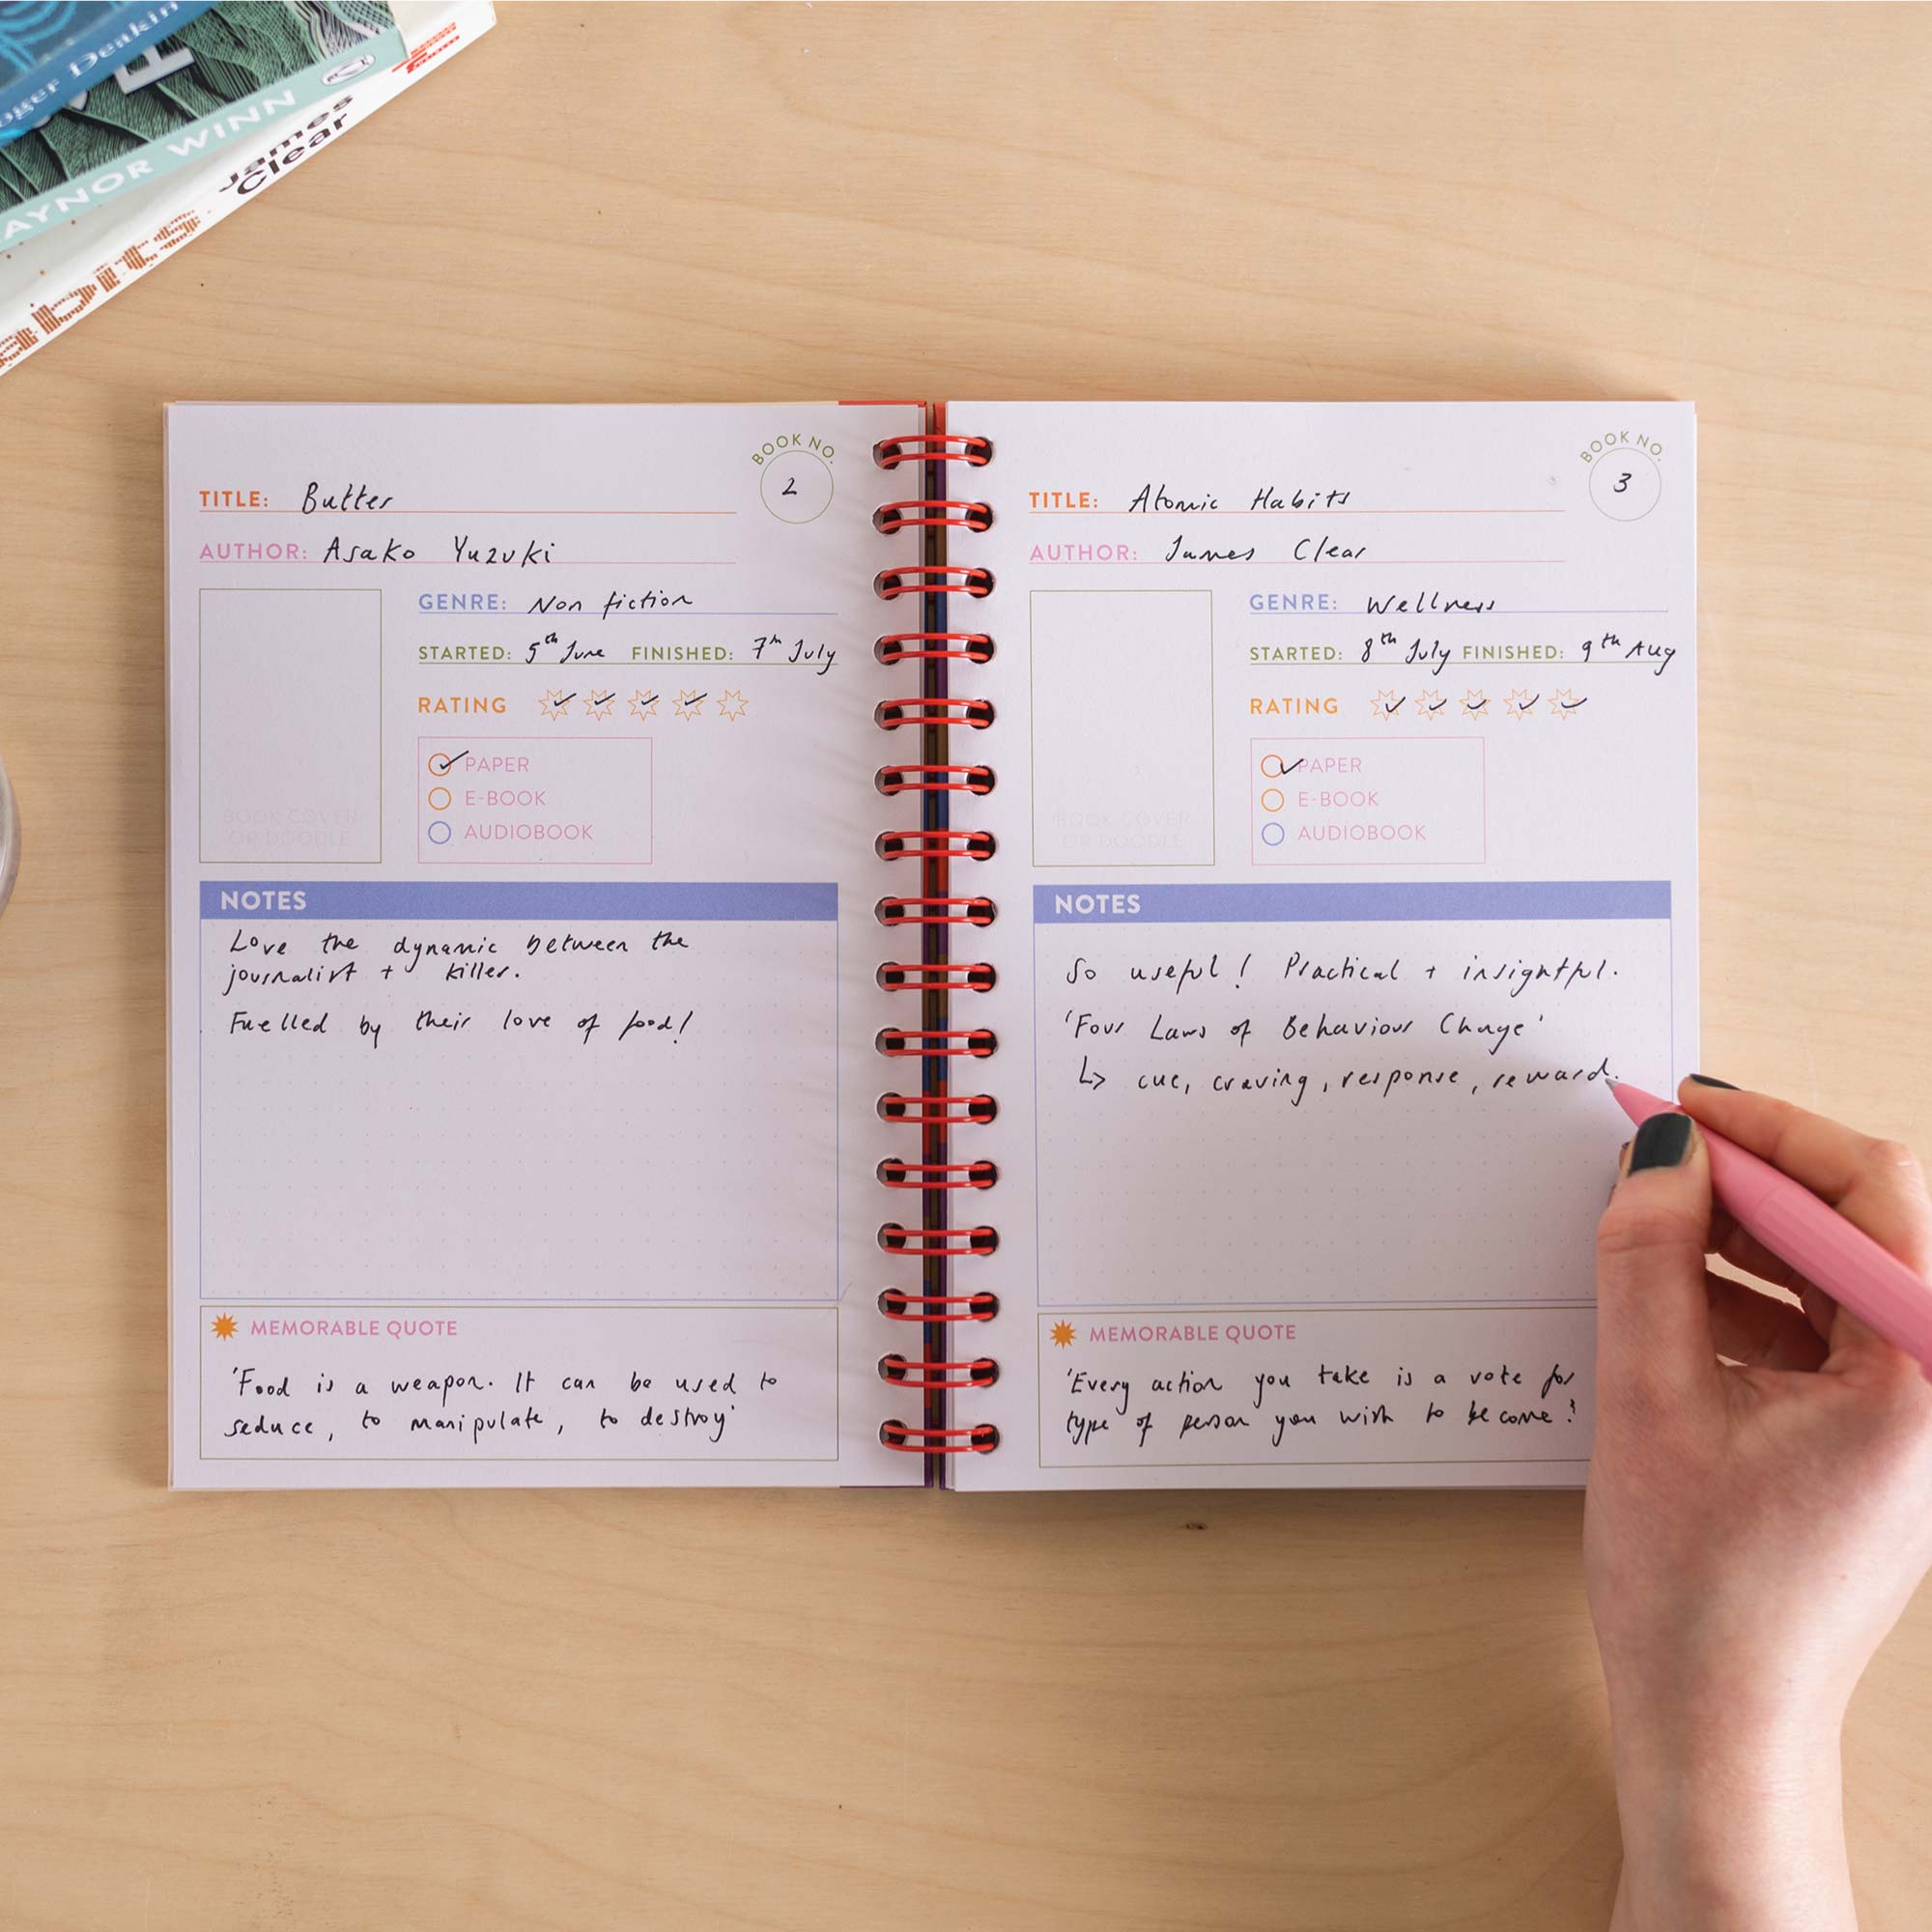 oger Deakin
AYNOR WINN
James
Clear
abits
BOOK NO.
2
TITLE: Butter
AUTHOR: Asako Yuzuki
GENRE: Non fiction
STARTED: 5th June FINISHED: 7th July
RATING
PAPER
E-BOOK
AUDIOBOOK
BOOK COVER
OR DOODLE
NOTES
Love the dynamic between the
journalist + killer.
Fuelled by their love of food!
MEMORABLE QUOTE
'Food is a weapon. It can be used to
seduce, to manipulate, to destroy'
BOOK NO.
3
TITLE: Atomic Habits
AUTHOR: James Clear
GENRE: Wellness
STARTED: 8th July FINISHED: 9th Aug
RATING
PAPER
E-BOOK
AUDIOBOOK
BOOK COVER
OR DOODLE
NOTES
So useful! Practical + insightful.
'Four Laws of Behaviour Change'
↳ cue, craving, response, reward.
MEMORABLE QUOTE
'Every action you take is a vote for
type of person you wish to become'